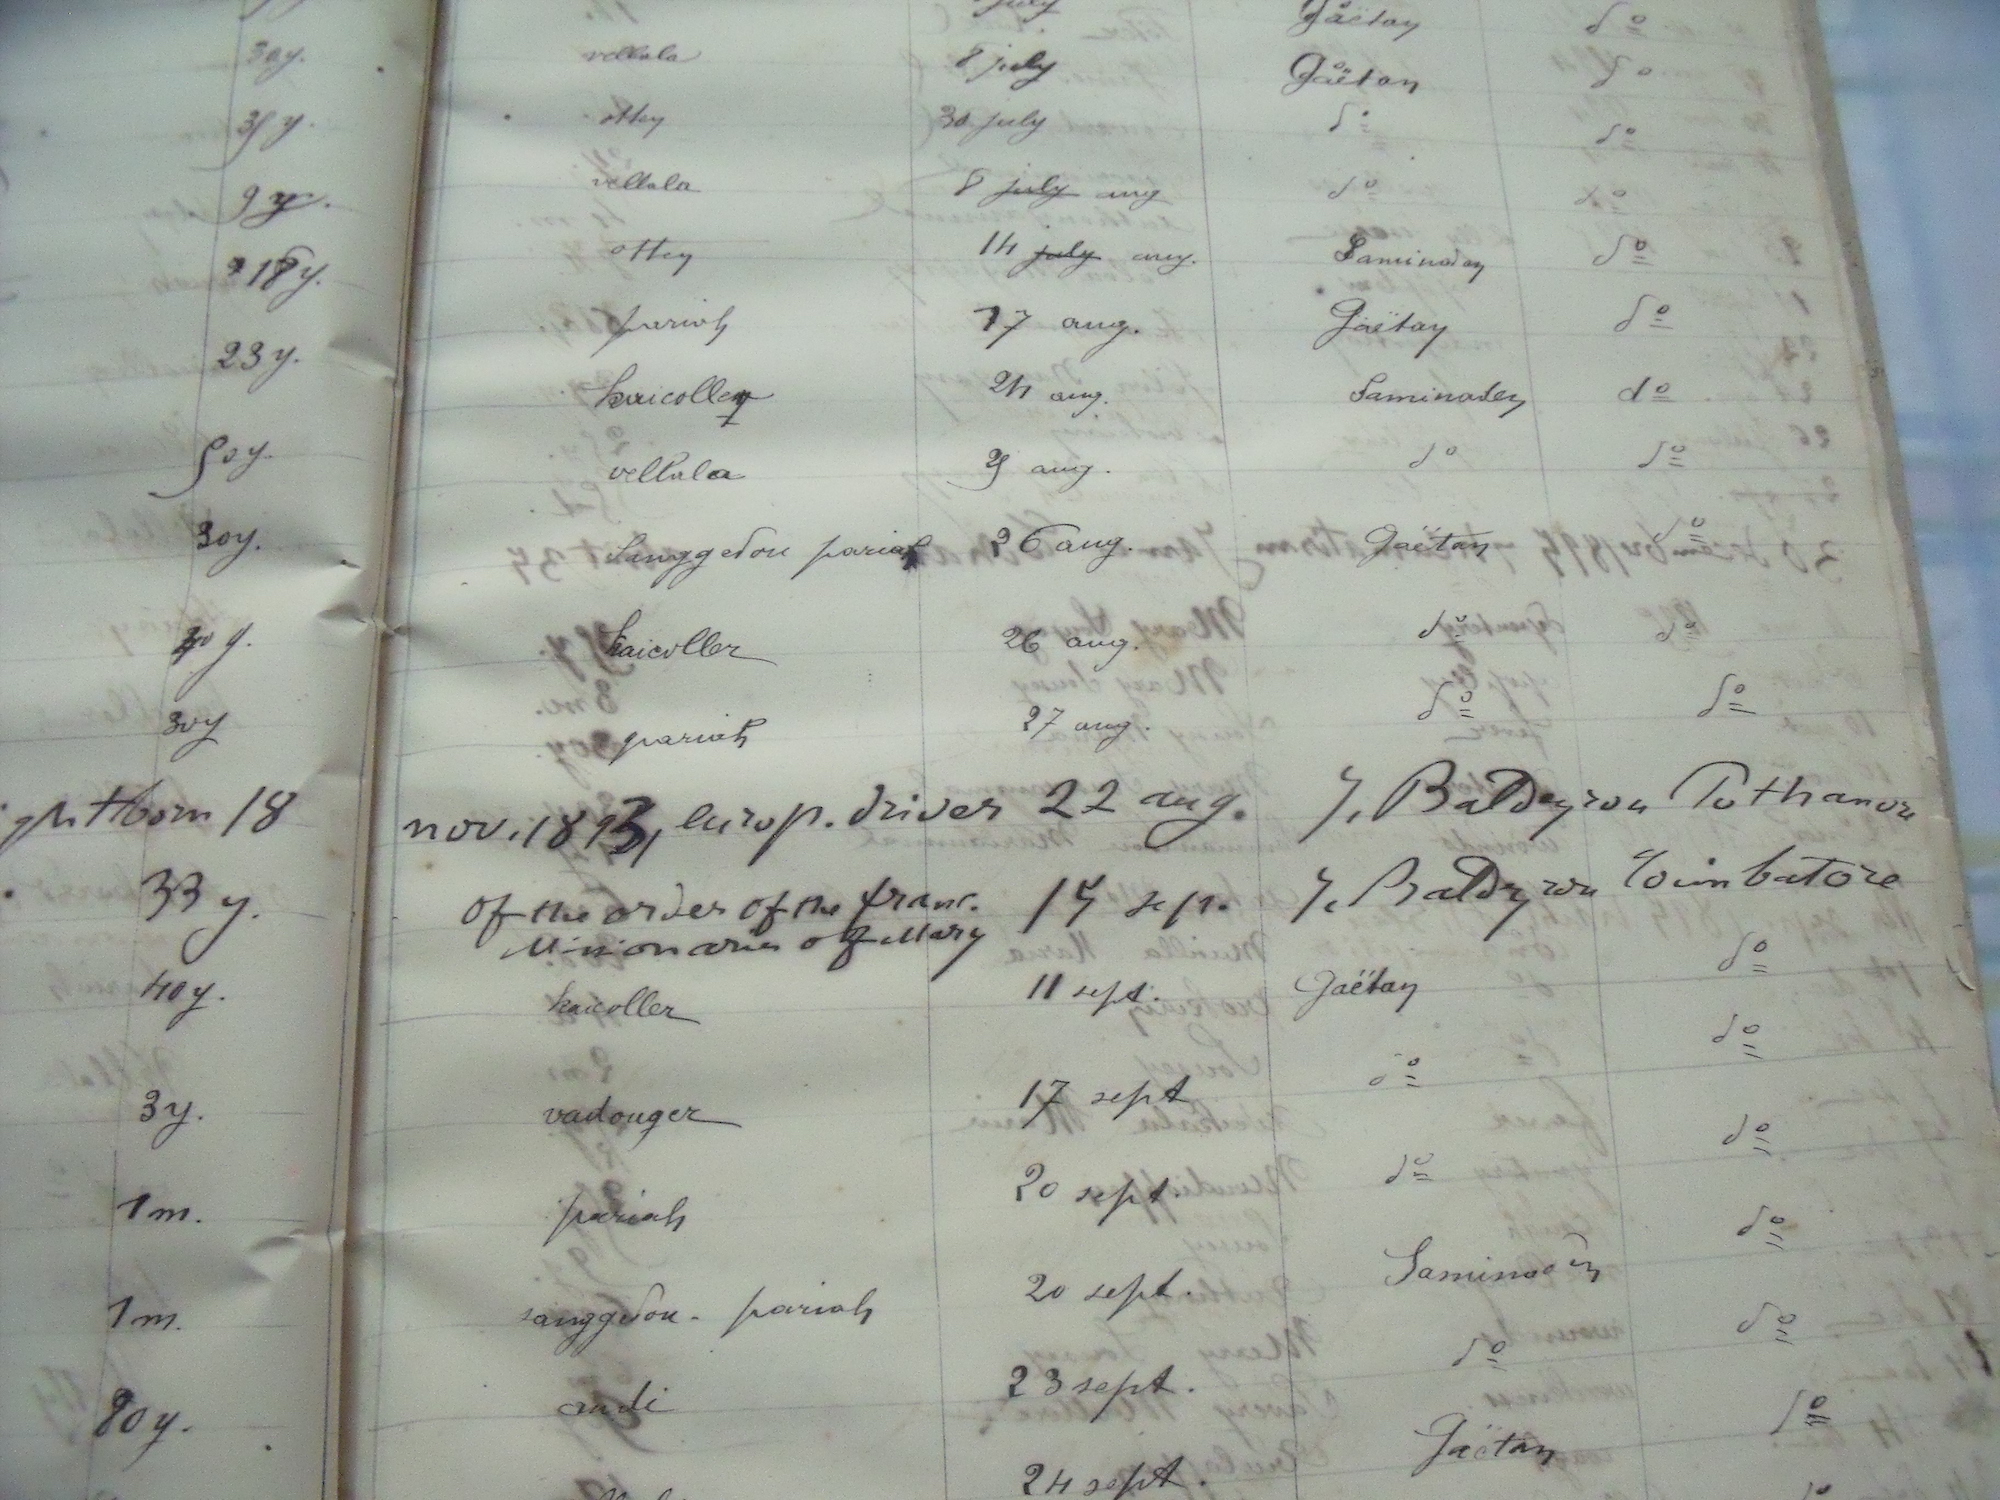 july Gaëtan do
30y. vellala 8 july Gaëtan do
35 y. ottey 30 july do do
9 y. vellala 8 july aug do do
18y. ottey 14 july aug. Saminaden do
23 y. pariah 17 aug. Gaëtan do
kaicoller 24 aug. Saminaden do
50y. vellala 25 aug. do do
30y. sanggedou pariah 26 aug. Gaëtan do
40 y. kaicoller 26 aug. do do
30y pariah 27 aug. do do
born 18 nov. 1893, europ. driver 22 aug. J. Baldeyrou Pothanore
33 y. of the order of the franc. 15 sept. J. Baldeyrou Coimbatore
Missionaries of Mary
40y. kaicoller 11 sept. Gaëtan do
3y. vadouger 17 sept do do
1 m. pariah 20 sept. do do
1 m. sanggedou - pariah 20 sept. Saminaden do
80y. andi 23 sept. do do
24 sept. Gaëtan do